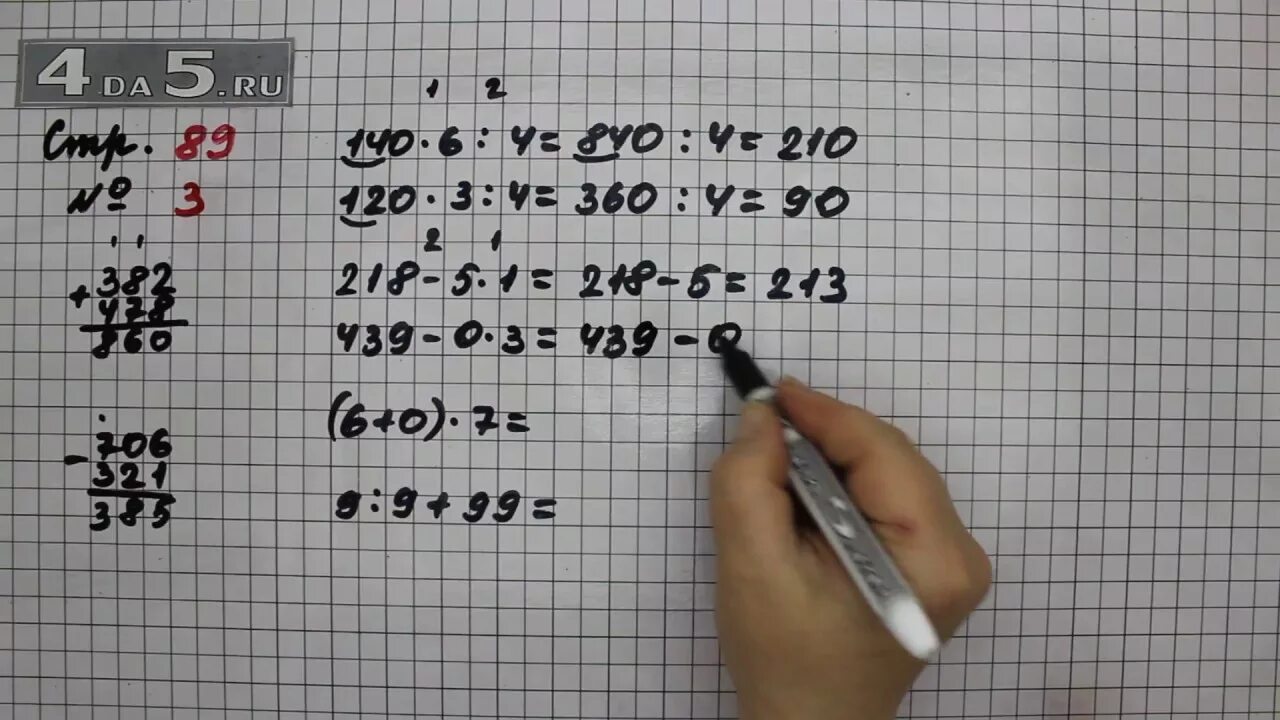 4 DA 5.RU
Стр. 89
№ 3
382
+ 478
860
- 706
321
385
1 2
140·6:4=840:4=210
120·3:4=360:4=90
2 1
218-5·1=218-5=213
439-0·3=439-0
(6+0)·7=
9:9+99=